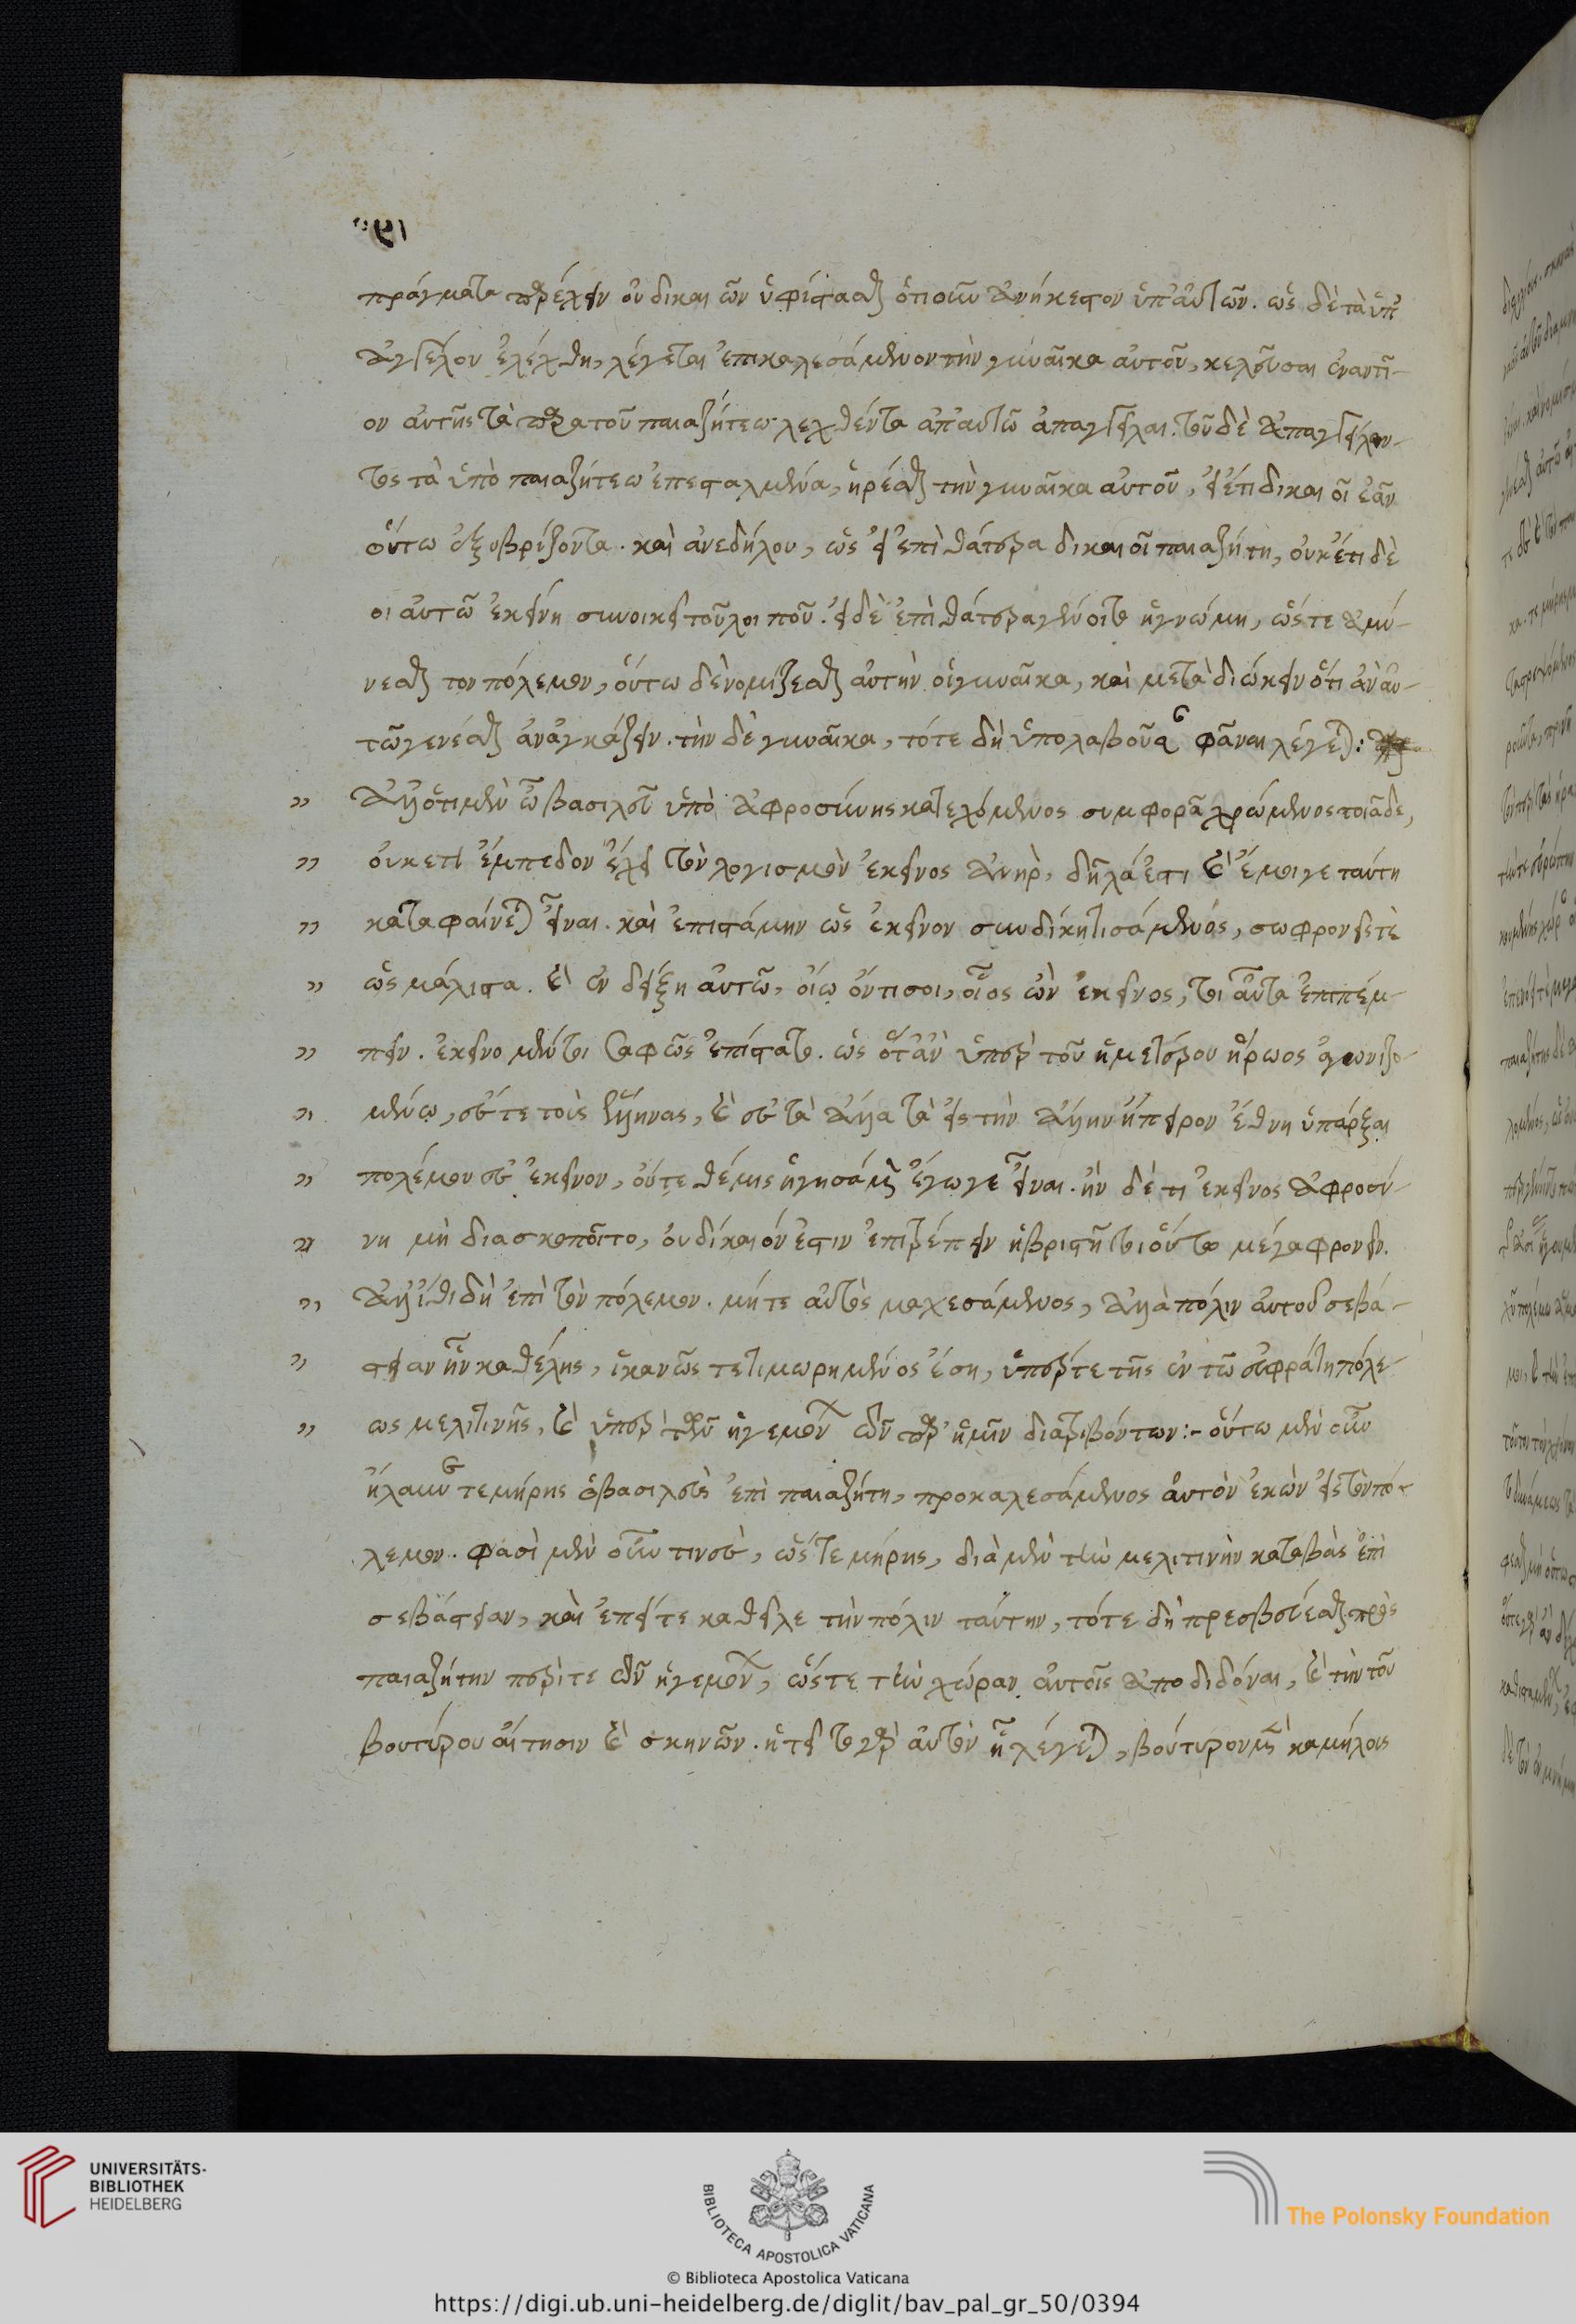 πράγματα παρέχειν οὐ δικαιῶν ὑφίστασθαι ὁτιοῦν ἀνήκεστον ὑπ' αὐτῶν. ὡς δὲ τὰ ὑπ'
ἀγγέλου ἐλέχθη, λέγεται ἐπικαλεσάμενον τὴν γυναῖκα αὐτοῦ, κελεῦσαι ἐναντί-
ον αὐτῆς τὰ παρὰ τοῦ παιαζήτεω λεχθέντα ἀπ' αὐτῶ ἀπαγγεῖλαι. τοῦ δὲ ἀπαγγείλαν-
τος τὰ ὑπὸ παιαζήτεω ἐπεσταλμένα, ἠρέσθαι τὴν γυναῖκα αὐτοῦ, εἰ ἔτι δικαιοῖ ἐᾶν
οὕτω ἐξυβρίζοντα. καὶ ἀνεδήλου, ὡς εἰ ἐπὶ θάτερα δικαιοῖ παιαζήτη, οὐκέτι δὲ
οι αὐτῶ ἐκείνη συνοικεῖ τοῦ λοιποῦ. εἰ δὲ ἐπὶ θάτερα γένοιτο ἡ γνώμη, ὥστε ἀμύ-
νεσθαι τὸν πόλεμον, οὕτω δὲ νομίζεσθαι αὐτὴν οἱ γυναῖκα, καὶ μεταδιώκειν ὅτι ἂν αὐ-
τῶ γενέσθαι ἀναγκάζειν. τὴν δὲ γυναῖκα, τότε δὴ ὑπολαβοῦσαν φᾶναι λέγεται:
" Ἀλλ' ὅτι μὲν ὦ βασιλεῦ ὑπὸ ἀφροσύνης κατεχόμενος συμφορᾶ χρώμενος τοιᾶδε,
" οὐκέτι ἔμπεδον ἔχει τὸν λογισμὸν ἐκεῖνος ἀνὴρ, δῆλά ἐστι καὶ ἔμοιγε ταύτη
" καταφαίνεται εἶναι. καὶ ἐπιστάμην ὡς ἐκεῖνον συ δίκη τισάμενός, σωφρονεῖς τὲ
" ὡς μάλιστα. καὶ ἐνδείξη αὐτῶ, οἵω ὄντι σοι, οἷος ὢν ἐκεῖνος, τοιαῦτα ἐπιπέμ-
" πειν. ἐκεῖνο μέντοι σαφῶς ἐπίστασο. ὡς ὅτ' ἂν ὑπὲρ τοῦ ἡμετέρου ἥρωος ἀγωνιζο-
" μένω, εὖ τε τοὺς ἕλληνας, καὶ εὖ τὰ ἄλλα τὰ εἰς τὴν ἄλλην ἤπειρον ἔθνη ὑπάρξαι
" πολέμου ἐς ἐκεῖνον, οὔτε θέμις ἡγησάμην ἔγωγε εἶναι. ἢν δέ τι ἐκεῖνος ἀφροσύ-
" νη μὴ διασκοποῖτο, οὐ δίκαιόν ἐστιν ἐπιτρέπειν ὑβριστῆ τι οὕτω μέγα φρονεῖν.
" Ἀλλ' ἴθι δὴ ἐπὶ τὸν πόλεμον. μήτε αὐτὸς μαχεσάμενος, ἀλλὰ πόλιν αὐτοῦ σεβά-
" στειαν ἢν καθέλης, ἱκανῶς τετιμωρημένος ἔση, ὑπέρ τε τῆς ἐν τῶ εὐφράτη πόλε-
" ως μελιτινῆς, καὶ ὑπὲρ τῶν ἡγεμόνων τῶν παρ' ἡμῖν διατριβόντων:- οὕτω μὲν οὖν
ἤλαυνε τεμήρης ὁ βασιλεὺς ἐπὶ παιαζήτη, προκαλεσάμενος αὐτὸν ἑκὼν εἰς τὸν πό-
λεμον. φασὶ μὲν οὖν τινες, ὡς τεμήρης, διὰ μὲν τὴν μελιτινὴν καταβὰς ἐπὶ
σεβάστειαν, καὶ ἐπεί τε καθεῖλε τὴν πόλιν ταύτην, τότε δὴ πρεσβεύεσθαι πρὸς
παιαζήτην περί τε τῶν ἡγεμόνων, ὥστε τὴν χώραν αὐτοῖς ἀποδιδόναι, καὶ τὴν τοῦ
βουτύρου αἴτησιν καὶ σκηνῶν. ᾐτεῖτο γὰρ αὐτὸν ᾗ λέγεται, βούτυρον μὲν καμήλοις
UNIVERSITÄTS-
BIBLIOTHEK
HEIDELBERG
BIBLIOTECA APOSTOLICA VATICANA
The Polonsky Foundation
© Biblioteca Apostolica Vaticana
https://digi.ub.uni-heidelberg.de/diglit/bav_pal_gr_50/0394